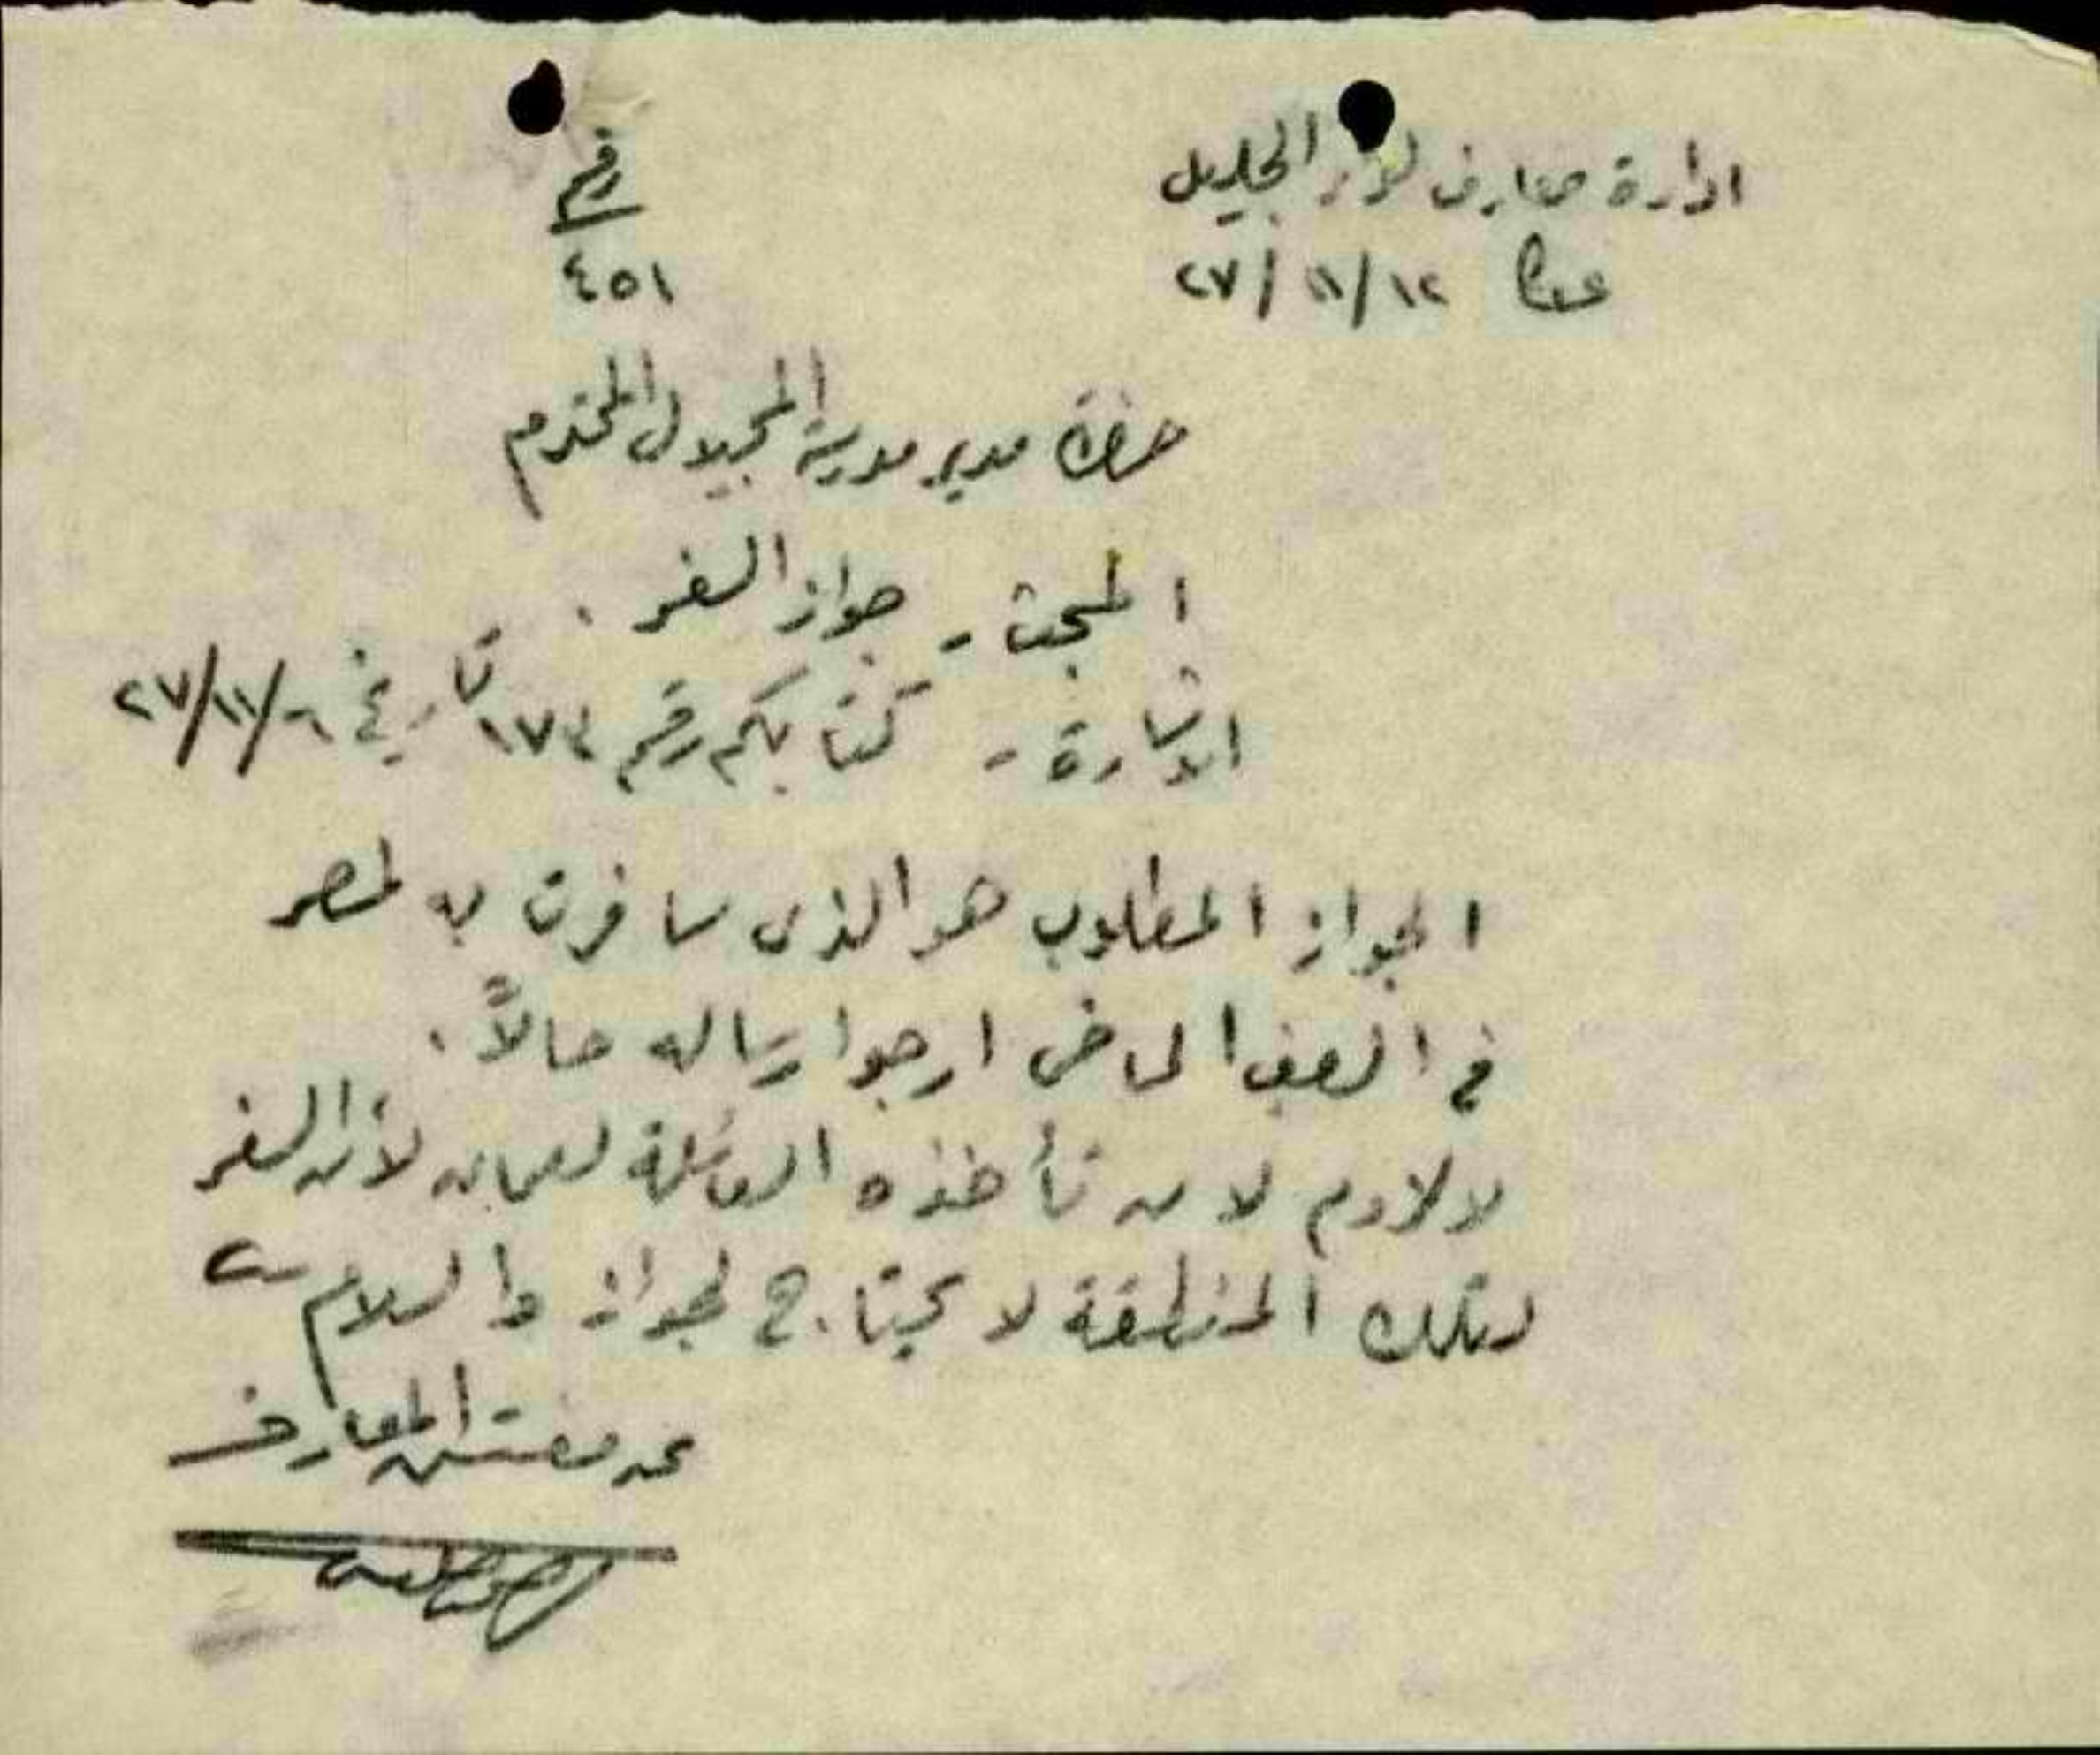 ادارة معارف لواء الجليل
رقم
عكا ١٢/١١/٢٧
٤٥١
حضرة مدير مدرسة المجيدل المحترم
المبحث - جواز السفر .
الاشارة - كتابكم رقم ١٧٤ تاريخ ٢٧/١١/٦
الجواز المطلوب هو الذى سافرت به لمصر
في الصيف الماضى ارجو ارساله حالاً .
لا لزوم لان تأخذه العائلة لعمان لأن السفر
لتلك المنطقة لا يحتاج لجواز والسلام
عن مفتش المعارف